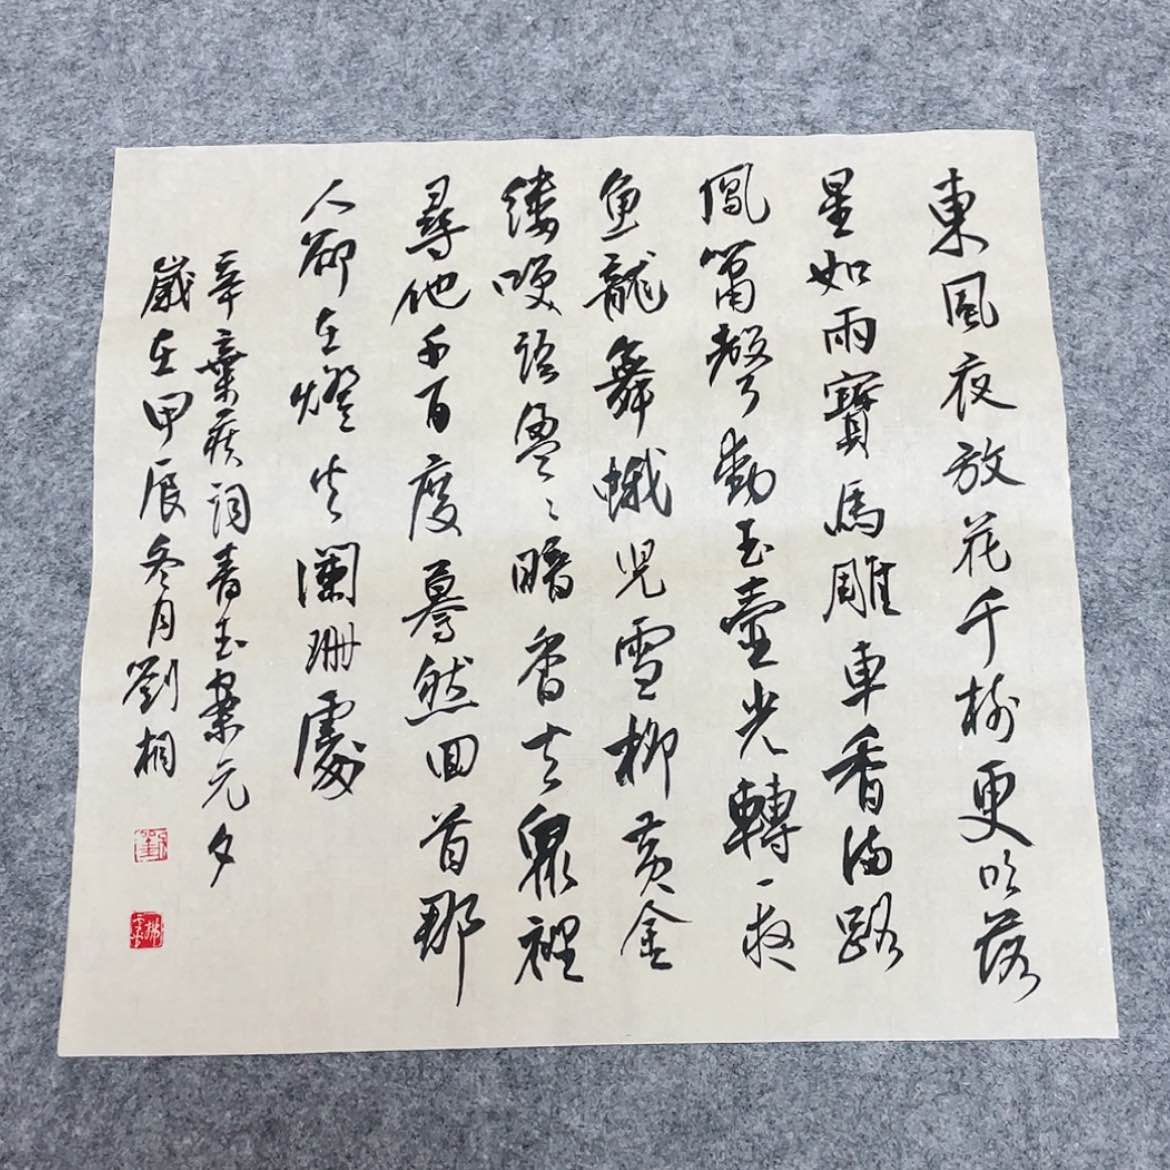 東風夜放花千樹更吹落
星如雨寶馬雕車香滿路
鳳簫聲動玉壺光轉一夜
魚龍舞蛾兒雪柳黃金
縷咲語盈〻暗香去眾裡
尋他千百度驀然回首那
人卻在燈火瀾珊處
辛棄疾詞青玉案元夕
歲在甲辰冬月劉相